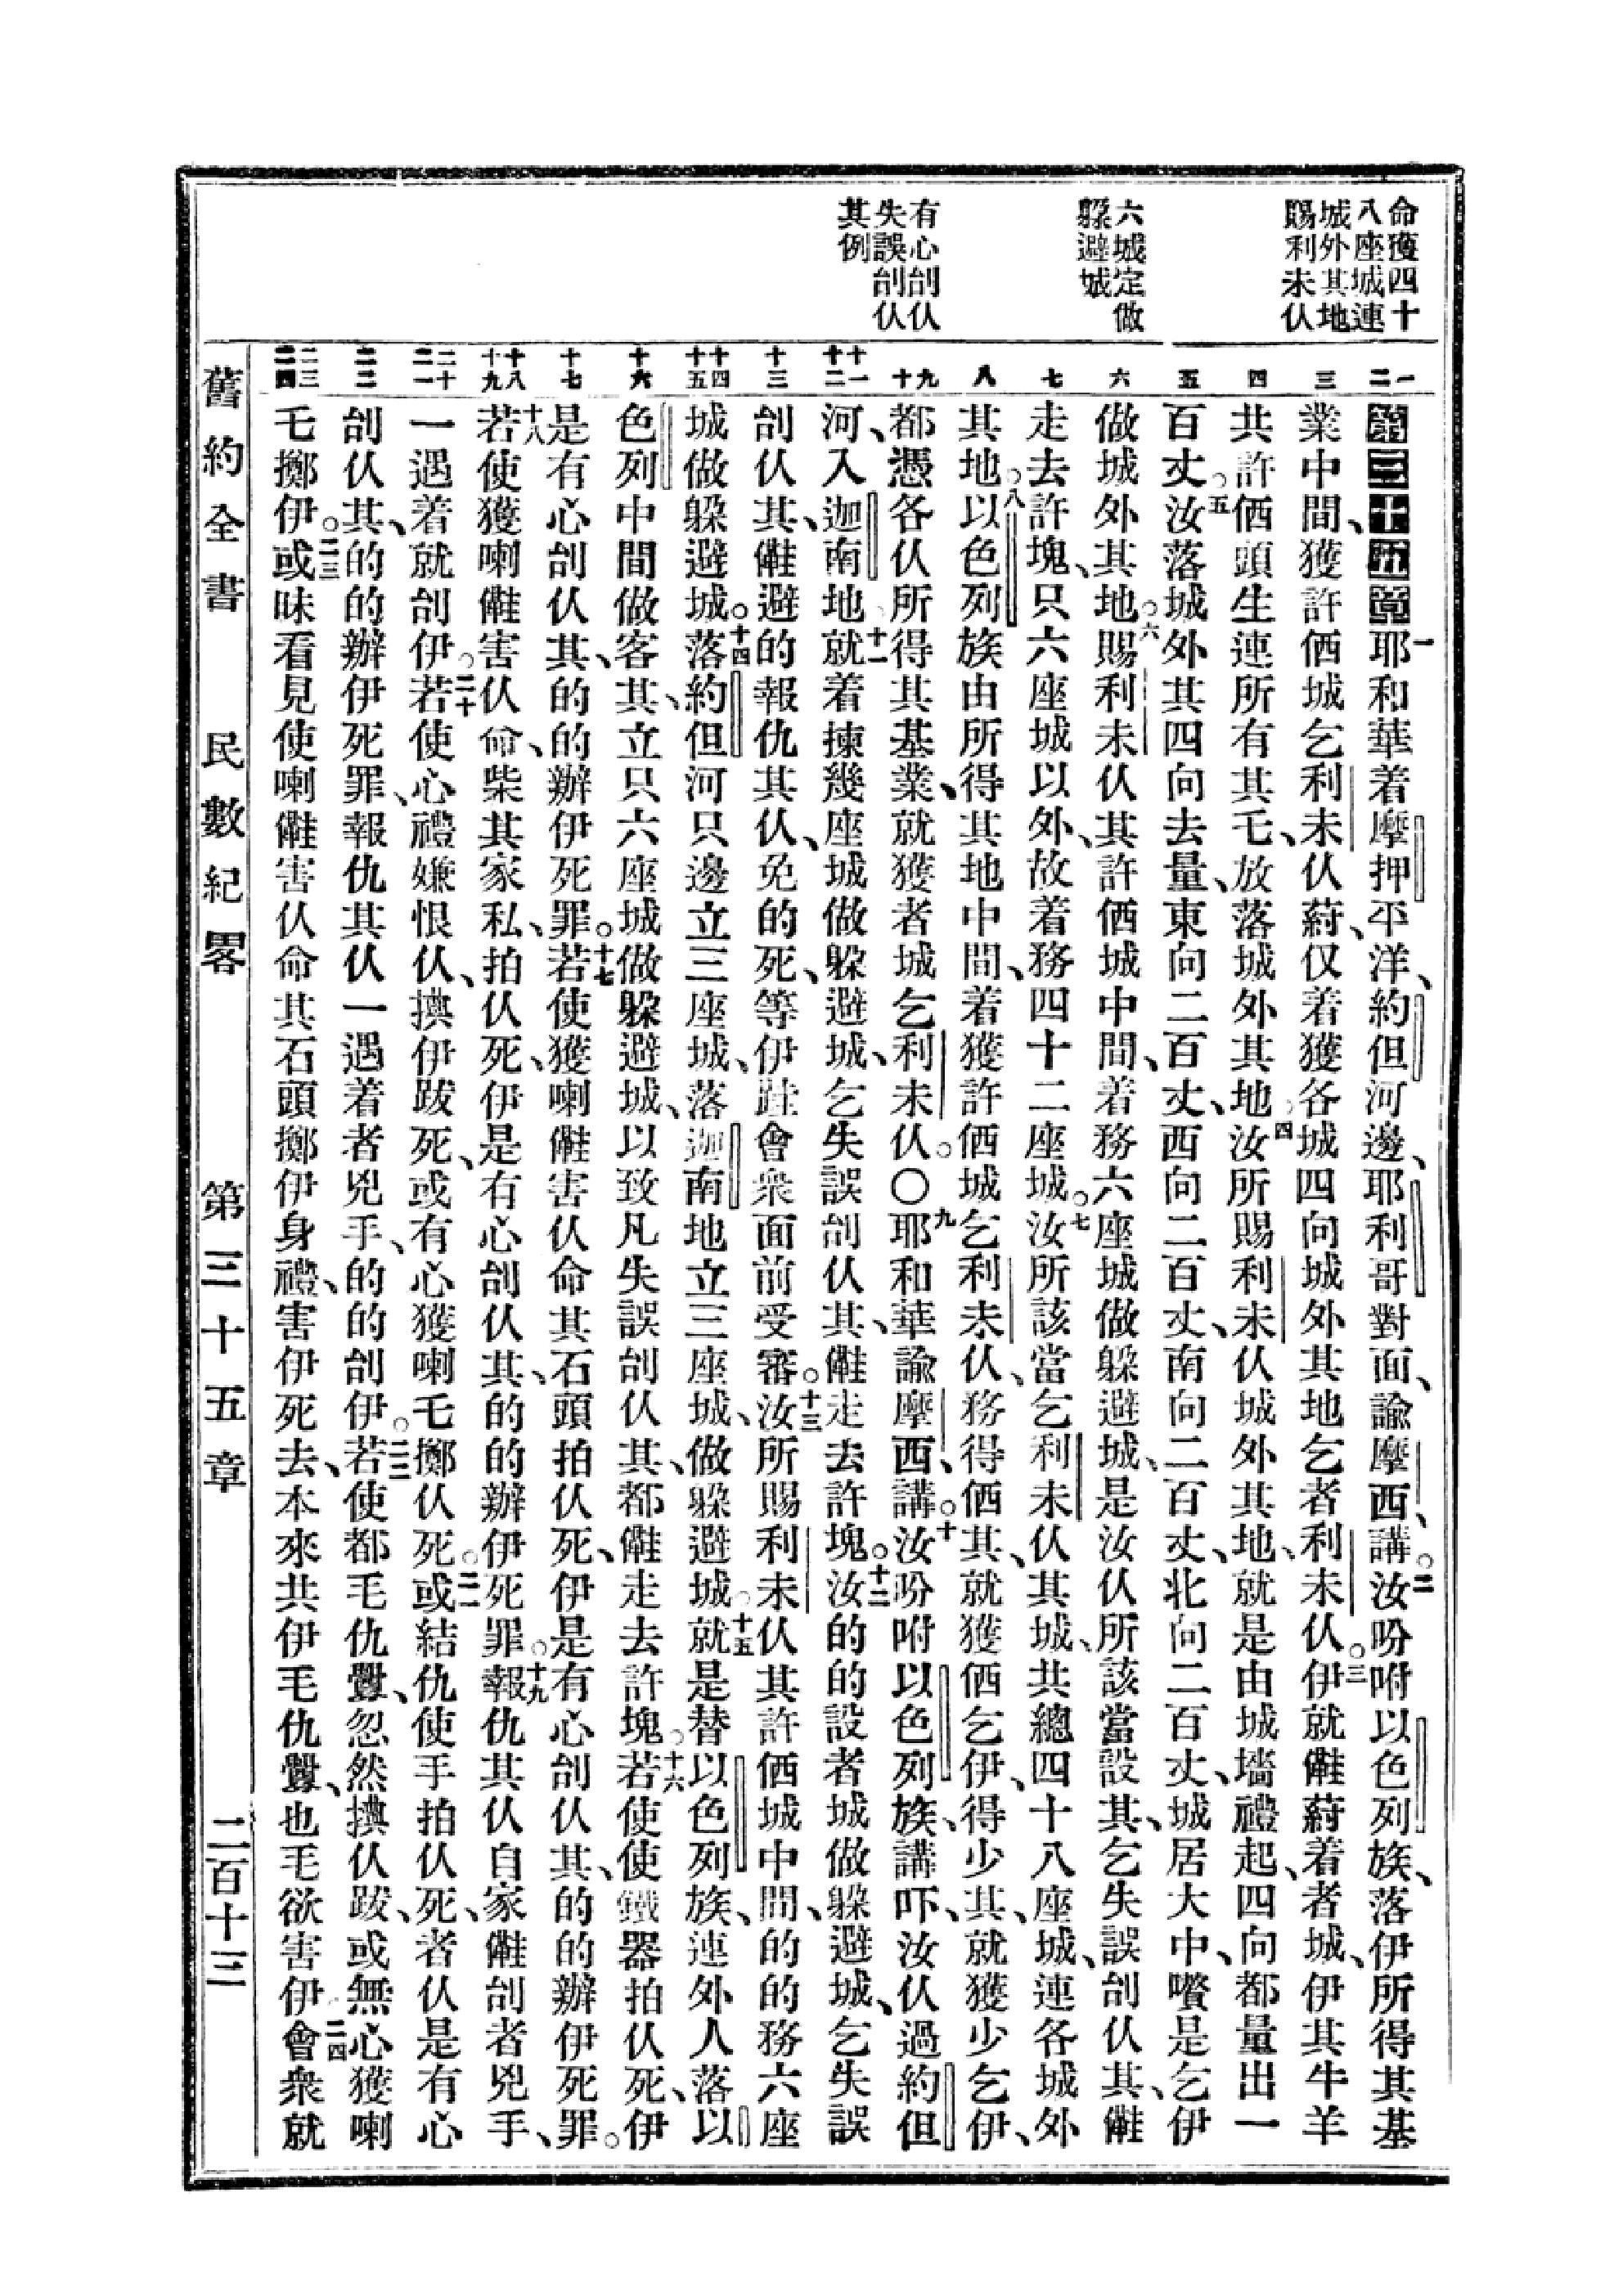 命獲四十
八座城連
城外其地
賜利未仈
六城定做
躲避城
有心刣仈
失誤刣仈
其例
一
二
三
四
五
六
七
八
九
十
十一
十二
十三
十四
十五
十六
十七
十八
十九
二十
二一
二二
二三
二四
第三十五章 一耶和華着摩押平洋、約但河邊、耶利哥對面、諭摩西、講。二汝吩咐以色列族、落伊所得其基
業中間、獲許、城乞利未仈蒔、仅着獲各城四向城外其地乞者利未仈。三伊就㒕蒔着者城、伊其牛羊
共許、頭生連所有其乇、放落城外其地。四汝所賜利未仈城外其地、就是由城墻禮起、四向都量出一
百丈。五汝落城外其四向去量、東向二百丈、西向二百丈、南向二百丈、北向二百丈、城居大中、嚽是乞伊
做城外其地。六賜利未仈其許、城中間、着務六座城做躲避城、是汝仈所該當設其、乞失誤刣仈其、㒕
走去許塊、只六座城以外、故着務四十二座城。七汝所該當乞利未仈其城、共總四十八座城、連各城外
其地。八以色列族由所得其地中間、着獲許、城乞利未仈、務得、其、就獲、乞伊、得少其、就獲少乞伊、
都憑各仈所得其基業、就獲者城乞利未仈。〇九耶和華諭摩西、講。十汝吩咐以色列族、講吓、汝仈過約但
河、入迦南地、十一就着揀幾座城做躲避城、乞失誤刣仈其、㒕走去許塊。十二汝的的設者城做躲避城、乞失誤
刣仈其、㒕避的報仇其仈、免的死、等伊跍會衆面前受審。十三汝所賜利未仈其許、城中間、的的務六座
城做躲避城。十四落約但河只邊立三座城、落迦南地立三座城、做躲避城。十五就是替以色列族、連外人落以
色列中間做客其、立只六座城做躲避城、以致凡失誤刣仈其、都㒕走去許塊。十六若使使鐵器拍仈死、伊
是有心刣仈其、的的辦伊死罪。十七若使獲喇㒕害仈命其石頭拍仈死、伊是有心刣仈其、的的辦伊死罪。
十八若使獲喇㒕害仈命、柴其家私、拍仈死、伊是有心刣仈其、的的辦伊死罪。十九報仇其仈自家㒕刣者兇手、
一遇着就刣伊。二十若使心禮嫌恨仈、㨂伊跋死、或有心獲喇乇擲仈死。二一或結仇使手拍仈死、者仈是有心
刣仈其、的的辦伊死罪、報仇其仈一遇着者兇手、的的刣伊。二二若使都毛仇釁、忽然㨂仈跋、或無心獲喇
乇擲伊。二三或昧看見使喇㒕害仈命其石頭擲伊身禮、害伊死去、本來共伊毛仇釁、也毛欲害伊。二四會衆就
舊約全書 民數紀畧 第三十五章 二百十三